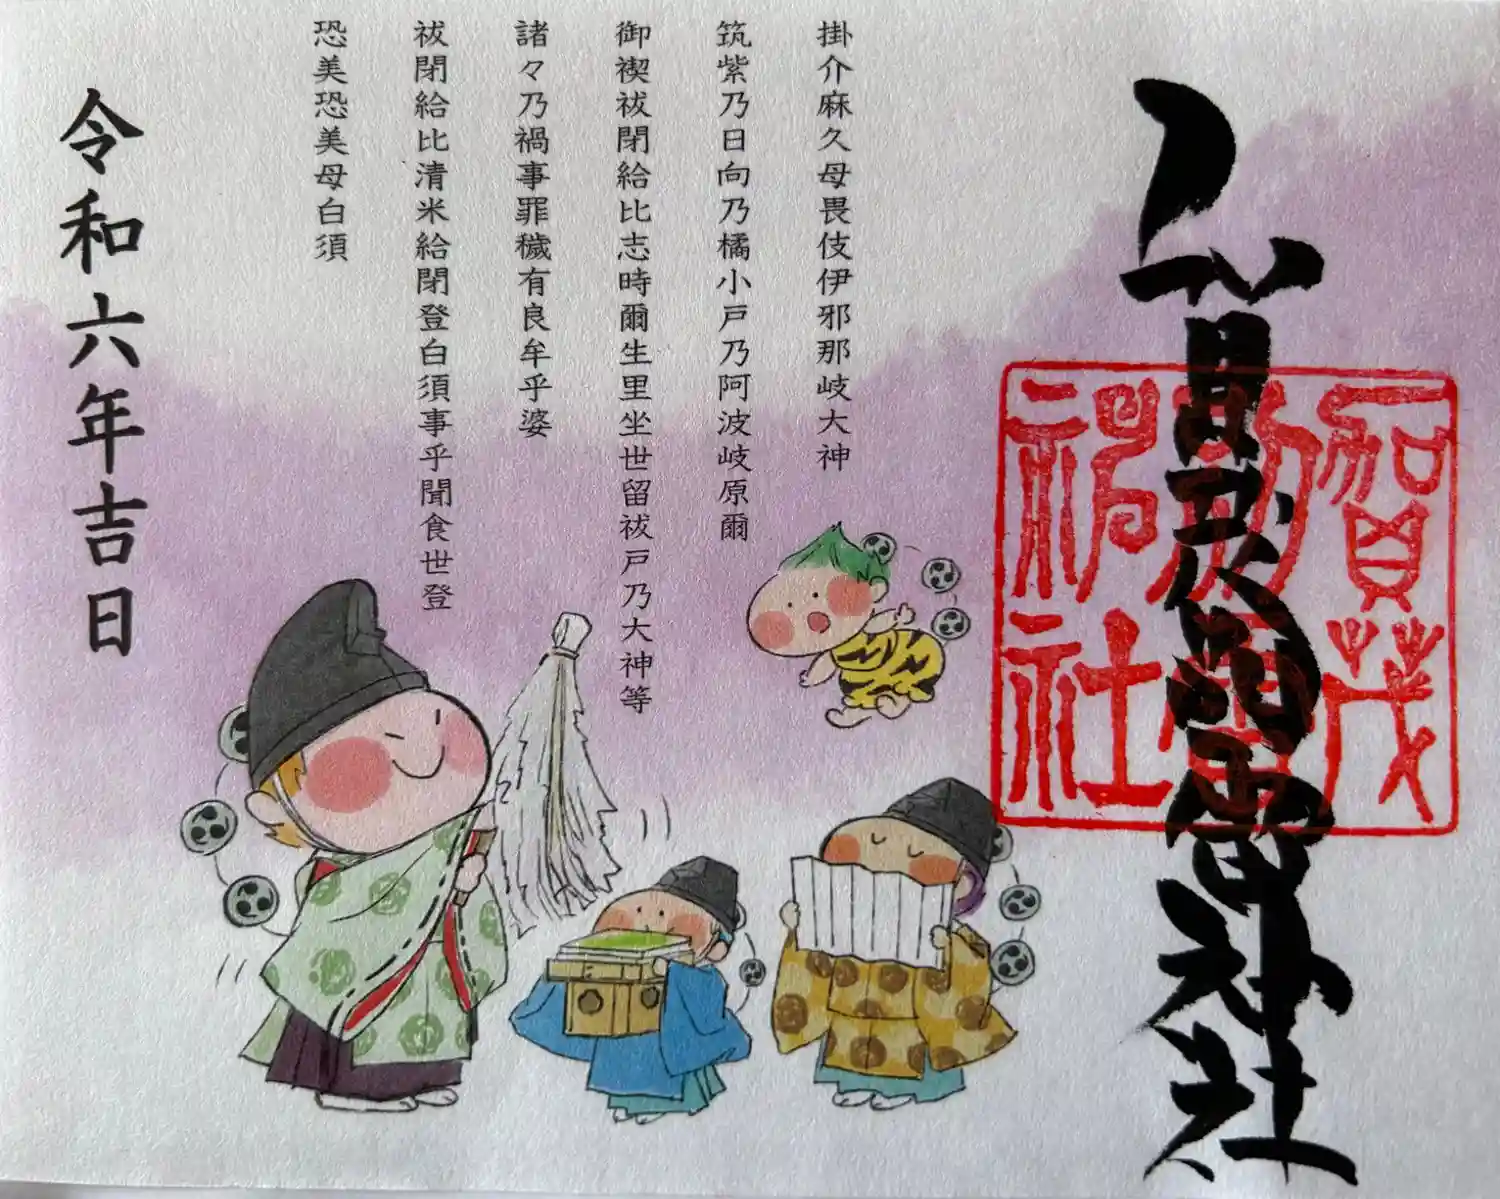 賀茂別雷神社
賀茂
別雷
神社
掛介麻久母畏伎伊邪那岐大神
筑紫乃日向乃橘小戸乃阿波岐原爾
御禊祓閉給比志時爾生里坐世留祓戸乃大神等
諸々乃禍事罪穢有良牟乎婆
祓閉給比清米給閉登白須事乎聞食世登
恐美恐美母白須
令和六年吉日